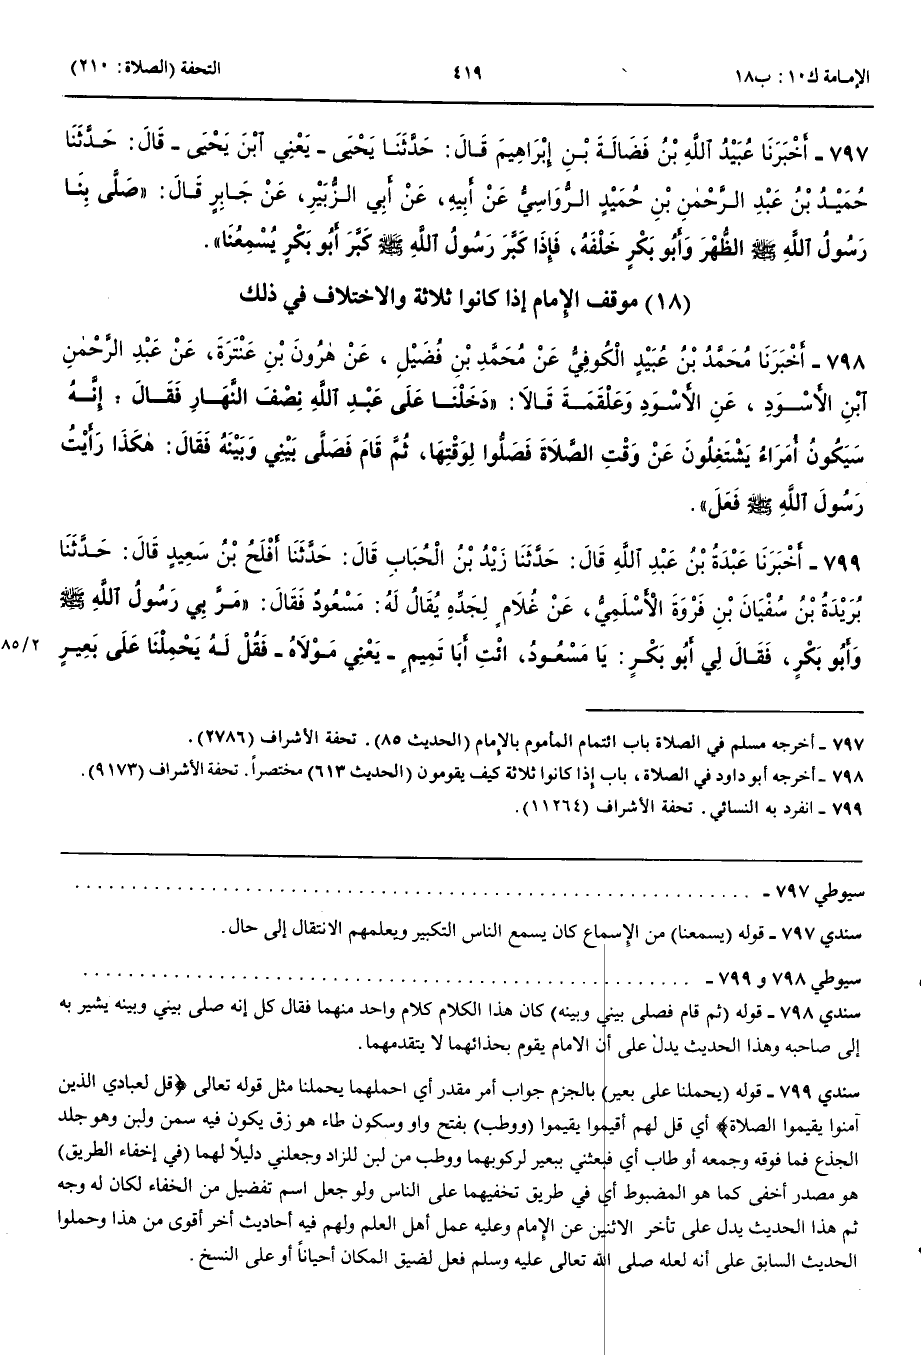 الإمامة ك١٠: ب١٨
٤١٩
التحفة (الصلاة: ٢١٠)
٧٩٧ ـ أَخْبَرَنَا عُبَيْدُ اللَّهِ بْنُ فَضَالَةَ بْنِ إِبْرَاهِيمَ قَالَ: حَدَّثَنَا يَحْيَى ـ يَعْنِي ابْنَ يَحْيَى ـ قَالَ: حَدَّثَنَا
حُمَيْدُ بْنُ عَبْدِ الرَّحْمٰنِ بْنِ حُمَيْدٍ الرُّوَاسِيُّ عَنْ أَبِيهِ، عَنْ أَبِي الزُّبَيْرِ، عَنْ جَابِرٍ قَالَ: «صَلَّى بِنَا
رَسُولُ اللَّهِ ﷺ الظُّهْرَ وَأَبُو بَكْرٍ خَلْفَهُ، فَإِذَا كَبَّرَ رَسُولُ اللَّهِ ﷺ كَبَّرَ أَبُو بَكْرٍ يُسْمِعُنَا».
(١٨) موقف الإمام إذا كانوا ثلاثة والاختلاف في ذلك
٧٩٨ ـ أَخْبَرَنَا مُحَمَّدُ بْنُ عُبَيْدٍ الْكُوفِيُّ عَنْ مُحَمَّدِ بْنِ فُضَيْلٍ ، عَنْ هٰرُونَ بْنِ عَنْتَرَةَ، عَنْ عَبْدِ الرَّحْمٰنِ
ابْنِ الْأَسْوَدِ ، عَنِ الْأَسْوَدِ وَعَلْقَمَةَ قَالَا: «دَخَلْنَا عَلَى عَبْدِ اللَّهِ نِصْفَ النَّهَارِ فَقَالَ : إِنَّهُ
سَيَكُونُ أُمَرَاءُ يَشْتَغِلُونَ عَنْ وَقْتِ الصَّلَاةِ فَصَلُّوا لِوَقْتِهَا، ثُمَّ قَامَ فَصَلَّى بَيْنِي وَبَيْنَهُ فَقَالَ: هٰكَذَا رَأَيْتُ
رَسُولَ اللَّهِ ﷺ فَعَلَ».
٧٩٩ ـ أَخْبَرَنَا عَبْدَةُ بْنُ عَبْدِ اللَّهِ قَالَ: حَدَّثَنَا زَيْدُ بْنُ الْحُبَابِ قَالَ: حَدَّثَنَا أَفْلَحُ بْنُ سَعِيدٍ قَالَ: حَدَّثَنَا
بُرَيْدَةُ بْنُ سُفْيَانَ بْنِ فَرْوَةَ الْأَسْلَمِيُّ، عَنْ غُلَامٍ لِجَدِّهِ يُقَالُ لَهُ: مَسْعُودٌ فَقَالَ: «مَرَّ بِي رَسُولُ اللَّهِ ﷺ
وَأَبُو بَكْرٍ، فَقَالَ لِي أَبُو بَكْرٍ: يَا مَسْعُودُ، ائْتِ أَبَا تَمِيمٍ ـ يَعْنِي مَوْلَاهُ ـ فَقُلْ لَهُ يَحْمِلْنَا عَلَى بَعِيرٍ
٨٥/٢
٧٩٧ ـ أخرجه مسلم في الصلاة باب ائتمام المأموم بالإمام (الحديث ٨٥). تحفة الأشراف (٢٧٨٦).
٧٩٨ ـ أخرجه أبو داود في الصلاة، باب إذا كانوا ثلاثة كيف يقومون (الحديث ٦١٣) مختصراً. تحفة الأشراف (٩١٧٣).
٧٩٩ ـ انفرد به النسائي. تحفة الأشراف (١١٢٦٤).
سيوطي ٧٩٧ ـ ..........................................................
سندي ٧٩٧ ـ قوله (يسمعنا) من الإسماع كان يسمع الناس التكبير ويعلمهم الانتقال إلى حال.
سيوطي ٧٩٨ و ٧٩٩ ـ ....................................................
سندي ٧٩٨ ـ قوله (ثم قام فصلى بيني وبينه) كان هذا الكلام كلام واحد منهما فقال كل إنه صلى بيني وبينه يشير به
إلى صاحبه وهذا الحديث يدل على أن الامام يقوم بحذائهما لا يتقدمهما.
سندي ٧٩٩ ـ قوله (يحملنا على بعير) بالجزم جواب أمر مقدر أي احملهما يحملنا مثل قوله تعالى ﴿قل لعبادي الذين
آمنوا يقيموا الصلاة﴾ أي قل لهم أقيموا يقيموا (ووطب) بفتح واو وسكون طاء هو زق يكون فيه سمن ولبن وهو جلد
الجذع فما فوقه وجمعه أو طاب أي فبعثني ببعير لركوبهما ووطب من لبن للزاد وجعلني دليلاً لهما (في إخفاء الطريق)
هو مصدر أخفى كما هو المضبوط أي في طريق تخفيهما على الناس ولو جعل اسم تفضيل من الخفاء لكان له وجه
ثم هذا الحديث يدل على تأخر الاثنين عن الإمام وعليه عمل أهل العلم ولهم فيه أحاديث أخر أقوى من هذا وحملوا
الحديث السابق على أنه لعله صلى الله تعالى عليه وسلم فعل لضيق المكان أحياناً أو على النسخ.